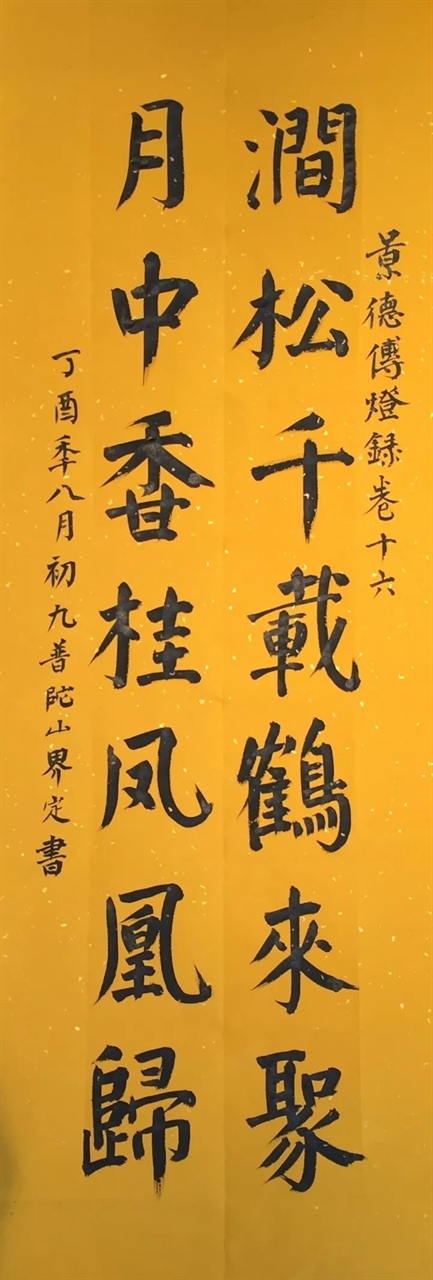 景德傳燈錄卷十六
澗松千載鶴來聚
月中香桂凤凰歸
丁酉季八月初九普陀山界定書